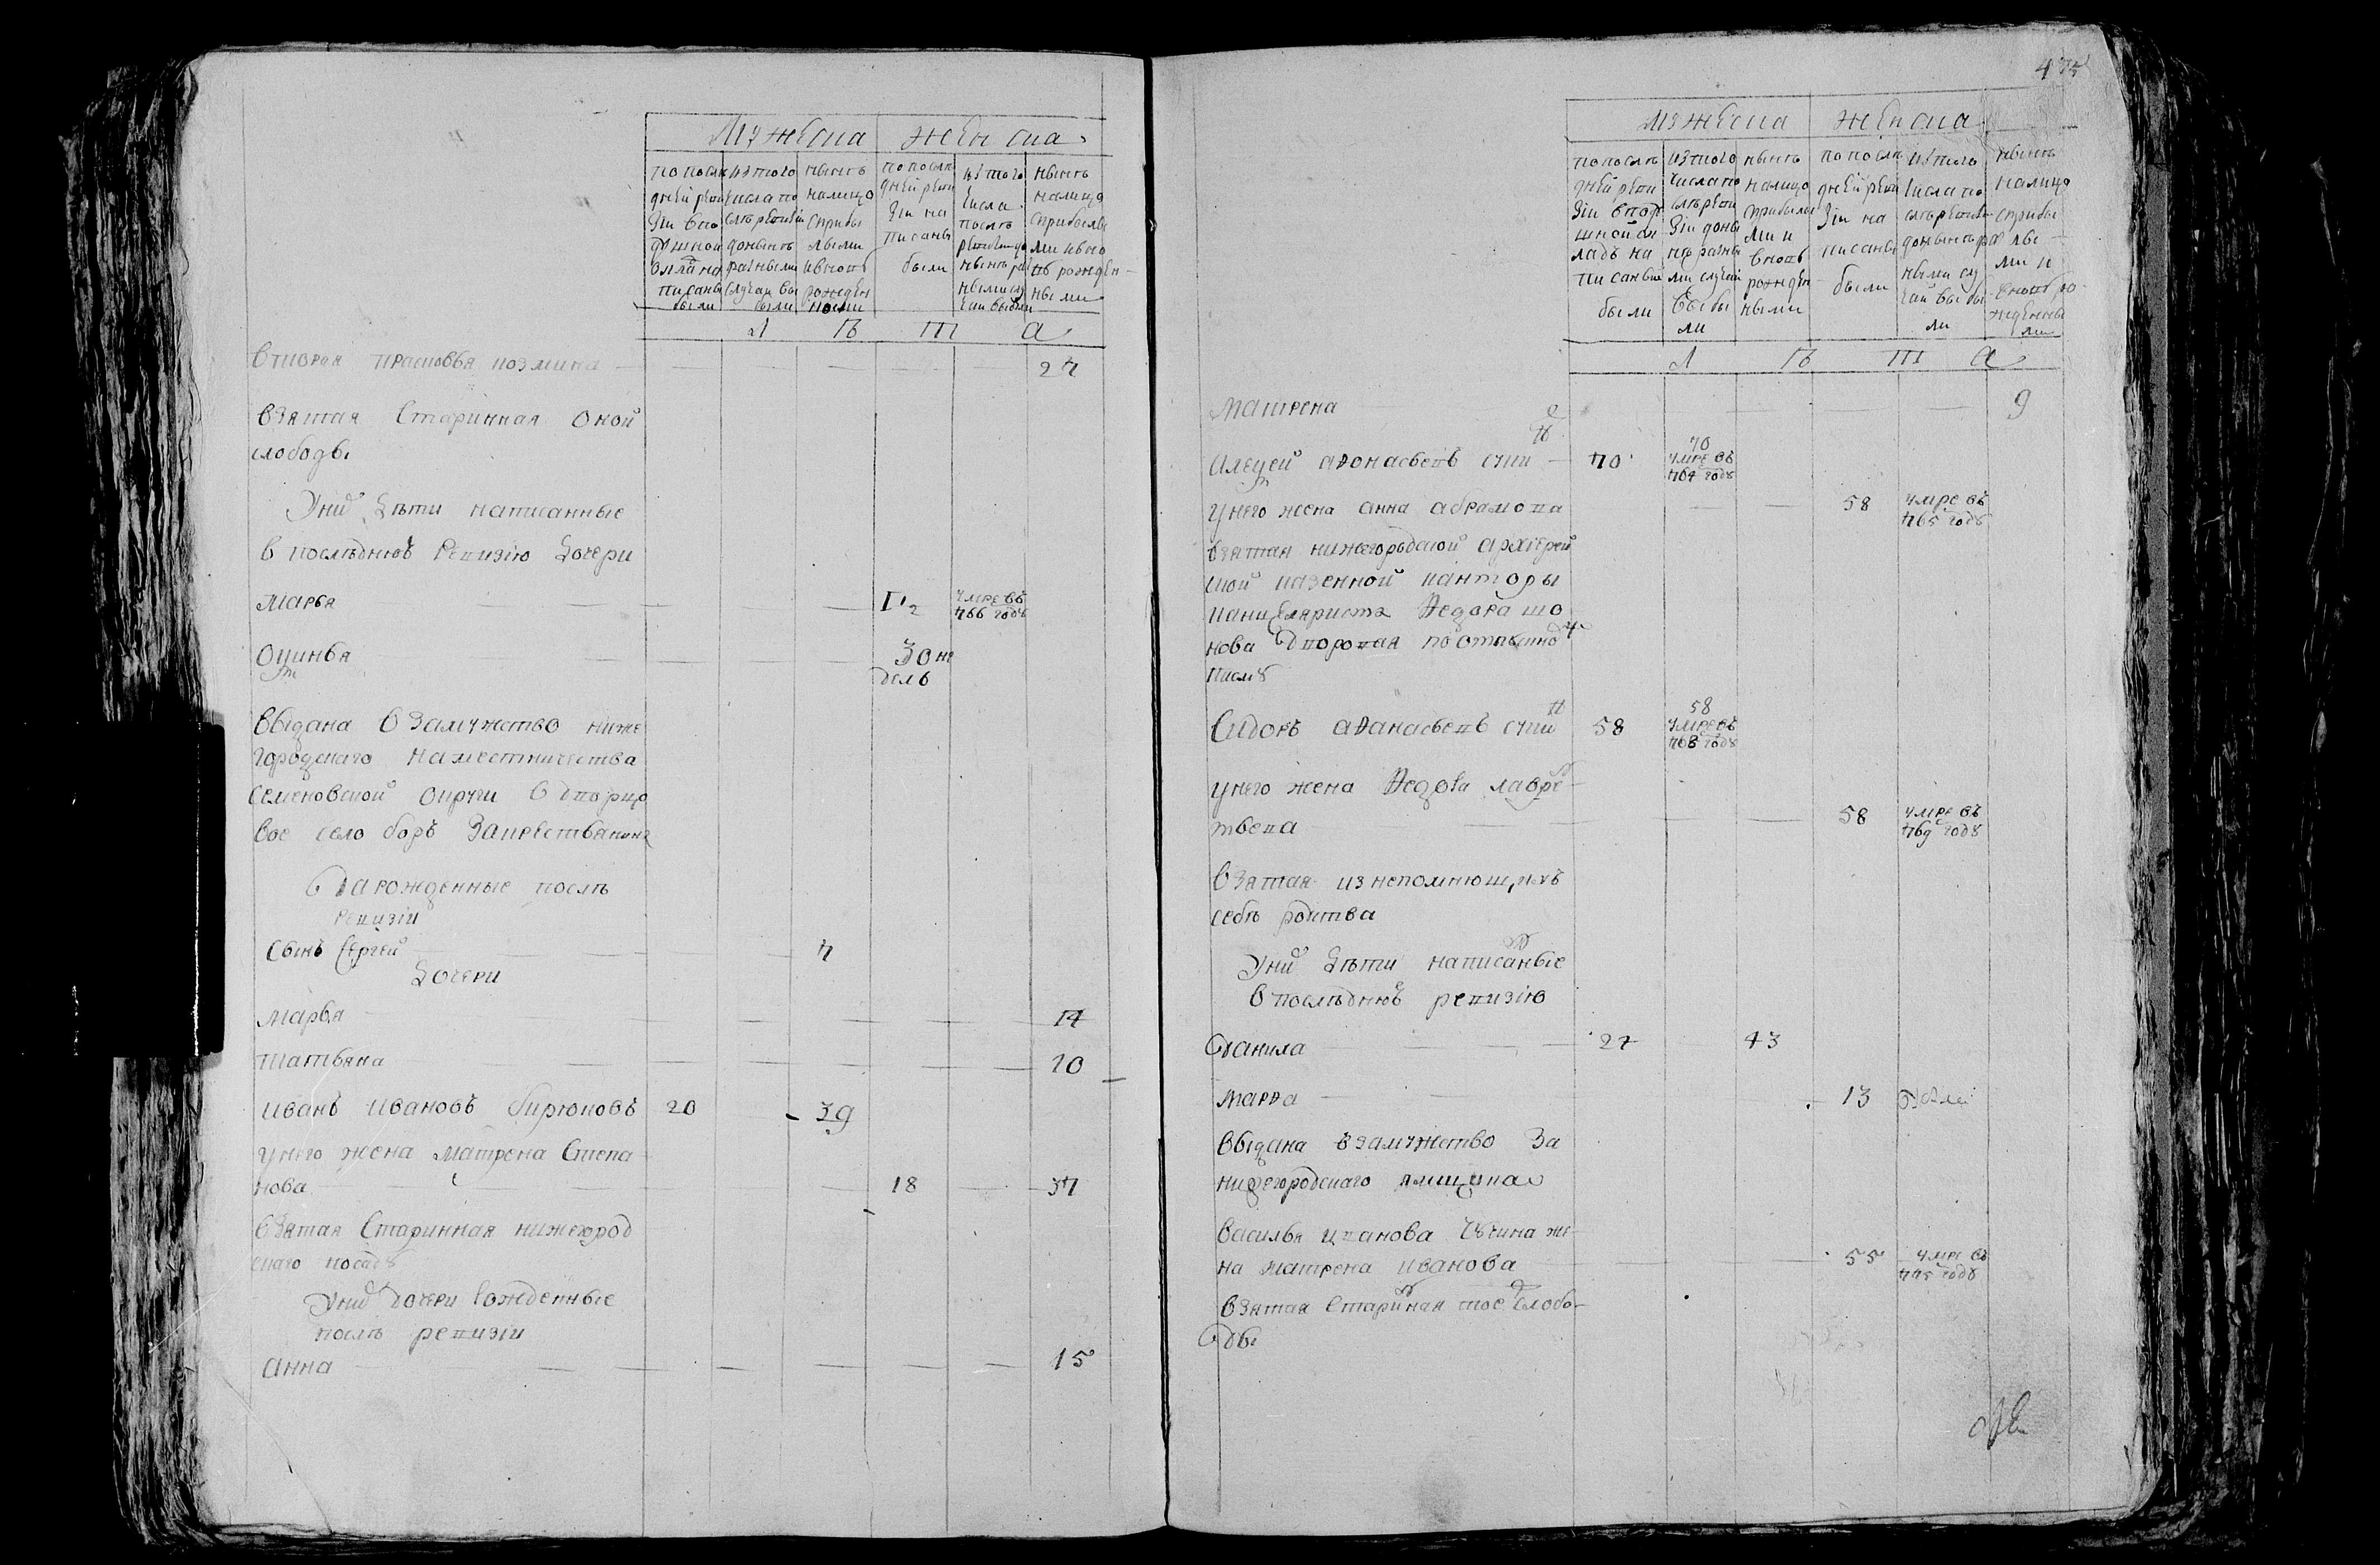 Мужеска женска
по после
дней реви
зіи в по
душной
оклад на
писаны
были
из того
числа по
слѣ ревизіи
до нынѣ
разными
случаи вы
были
нынѣ
на лицо
с прибы
лыми
и вновь
рожден
ными
по после
дней реви
зіи на
писаны
были
из того
числа
послѣ
ревизіи до
нынѣ раз
ными слу
чаи выбыли
нынѣ
на лицо
с прибылы
ми и вно
вь рожден
ными
Л ѣ т а
вторая прасковья козмина 27
взятая старинная оной
слободы
У них дѣти написанные
в последнюю ревизію дочери
марья 12 умре въ 766 годѣ
Офимья 30 недель
выдана в замужство ниже
городскаго наместничества
семеновской округи в дворцо
вое село боръ за крестьянина
Да рожденные послѣ
ревизіи
Сынъ Сергей 7
Дочери
марья 14
татьяна 10
иванъ ивановъ бирюковъ 20 39
у него жена матрена Степа
нова 18 37
взятая Старинная нижегород
скаго посада
У них дочери рожденные
послѣ ревизіи
анна 15
475
мужеска женска
по послѣ
дней реви
зіи в поду
шной ок
ладъ на
писаны
были
из того
числа по
слѣ реви
зіи до ны
нѣ разны
ми случаи
выбы
ли
нынѣ
на лицо
с прибылы
ми и
вновь
рожден
ными
по после
дней реви
зіи на
писаны
были
из того
числа по
слѣ ревизіи
до нынѣ раз
ными слу
чаи выбы
ли
нынѣ
на лицо
с прибы
лы
ми и
вновь ро
жденны
ми
Л ѣ т а
матрена 9
алексей афонасьевъ 70 70 умре въ 764 годѣ
у него жена анна абрамова 58 умре въ 765 годѣ
взятая нижегородской архіерей
ской казенной канторы
канцеляриста Федора
нова дворовая по отпускному
писмѣ
Сидоръ афанасьевъ 58 58 умре въ 768 годѣ
у него жена Федосья лавре
тьева 58 умре въ 769 годѣ
взятая из непомнющихъ
себѣ родства
У них дѣти написанные
в последнюю ревизію
Данила 27 43
марфа 13
выдана в замужство за
нижегородскаго ямщика
василья иванова жe
на матрена иванова 55 умре въ 775 годѣ
взятая старинная тое слобо
ды